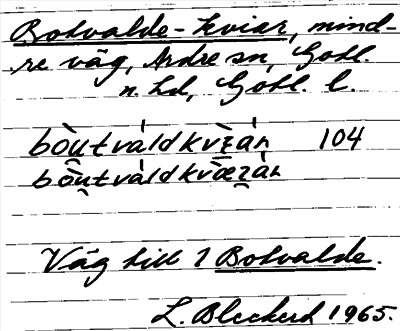 Botvalde-kviar, mind-
re väg, Ardre sn, Gotl.
n. hd, Gotl. l.
bòu̯tváldkvɪ̀ʑàn 104
bòu̯tváldkvæ̀ʑàn
Väg till 1 Botvalde.
L. Bleckert 1965.